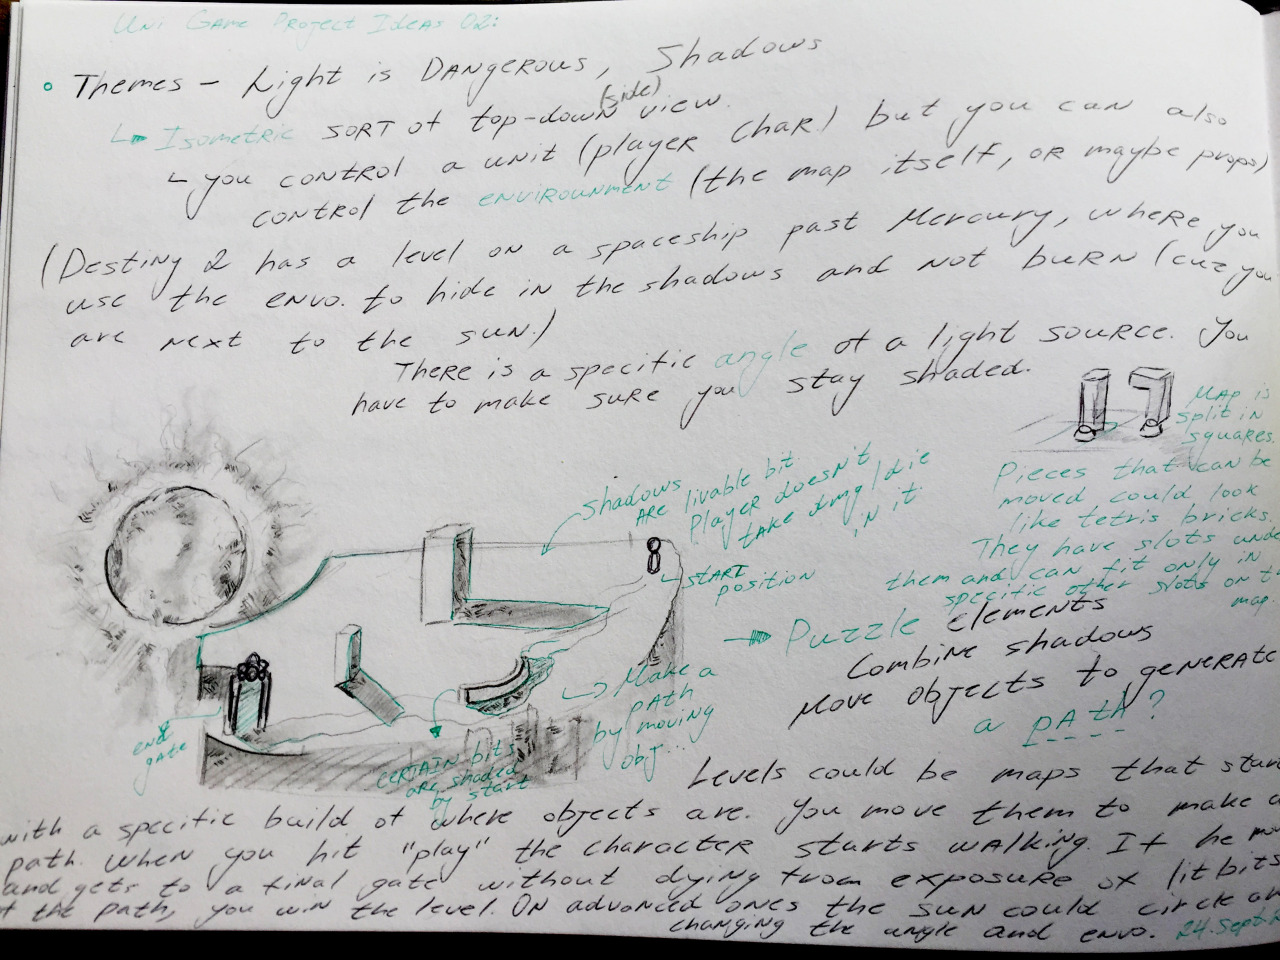 Uni Game Project Ideas 02:
• Themes - Light is Dangerous, Shadows
↳ Isometric sort of top-down (side) view.
↳ you control a unit (player char) but you can also
control the envirounment (the map itself, or maybe props)
(Destiny 2 has a level on a spaceship past Mercury, where you
use the envo. to hide in the shadows and not burn (cuz you
are next to the sun.)
There is a specific angle of a light source. You
have to make sure you stay shaded.
Map is
split in
squares.
Pieces that can be
moved could look
like tetris bricks.
They have slots unde
them and can fit only in
specific other slots on t
map.
shadows
are livable bit
Player doesn't
take dmg/die
in it
start
position
→ Puzzle elements
Combine shadows
Move objects to generate
a path?
Make a
path
by moving
obj...
end
gate
certain bits
are shaded
by start
Levels could be maps that star
with a specific build of where objects are. You move them to make a
path. When you hit "play" the character starts walking. If he mo
and gets to a final gate without dying from exposure of lit bits
of the path, you win the level. On advanced ones the sun could circle
changing the angle and envo. 24.Sept.